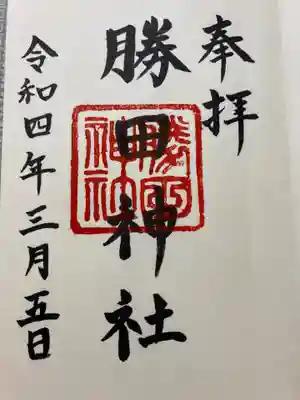 奉拝
勝田神社
勝田
神社
令和四年三月五日